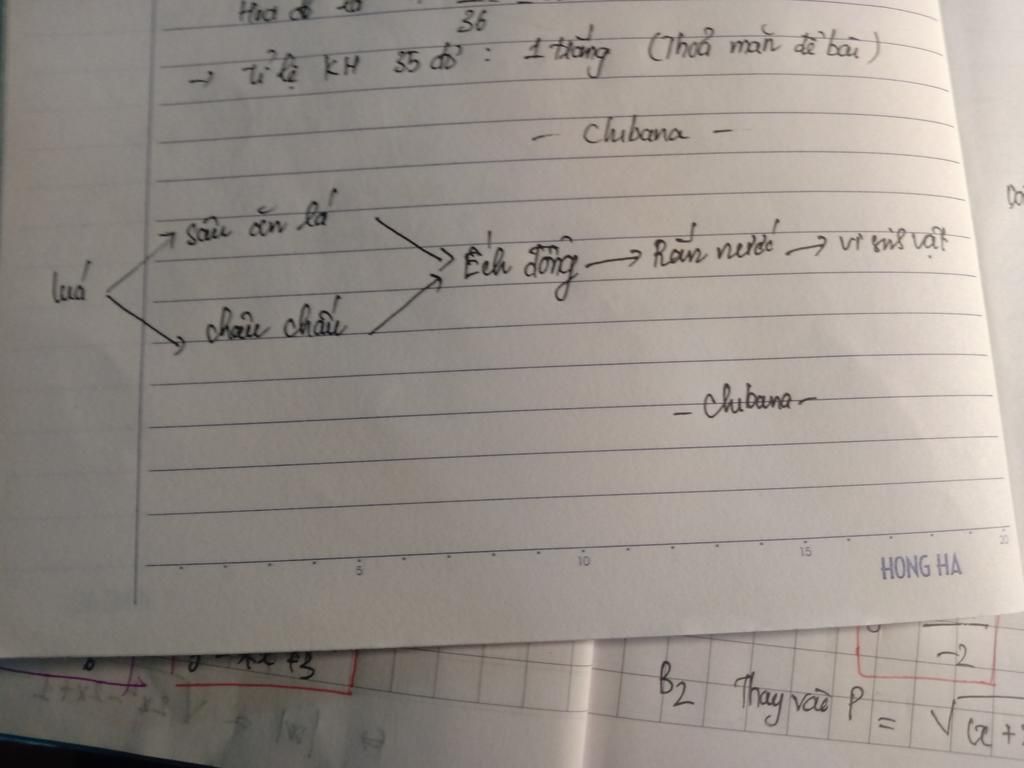 Hoa đỏ là
36
→ tỉ lệ KH 35 đỏ : 1 trắng (Thoả mãn đề bài)
- Chibana -
sâu ăn lá
lúa → Ếch đồng → Rắn nước → vi sinh vật
châu chấu
- Chibana -
5 10 15 20
HONG HA
+3
-2
B2 Thay vào P = √(x+